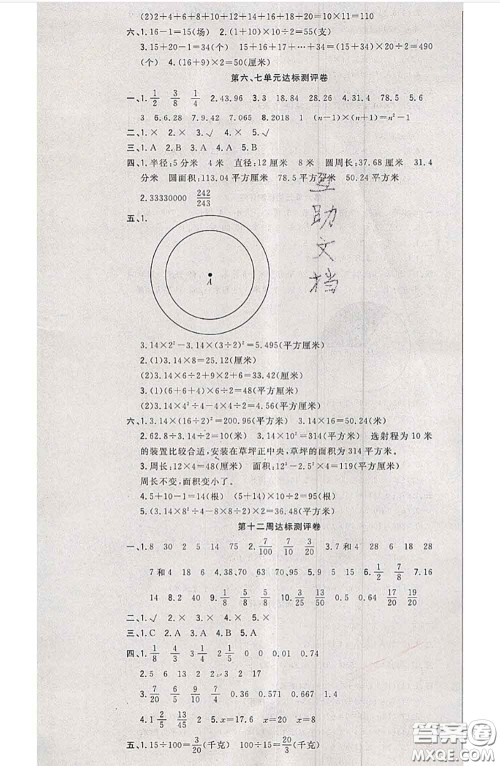 (2)2+4+6+8+10+12+14+16+18+20=10×11=110
六、1.16-1=15(场) 2.(1+10)×10÷2=55(支)
3.15+20-1=34(个) 15+16+17+…+34=(15+34)×20÷2=490
(个) 4.(16+9)×2=50(厘米)
第六、七单元达标测评卷
一、1.1/2 3/8 1/4 2.43.96 3.3 18.84 28.26 4.31.4 78.5 5.6
3 6.6.28 7.9.42 8.2018 1 (n-1)×(n+1)=n²-1
二、1.× 2.× 3.× 4.×
三、1.A 2.B 3.A 4.A
四、1.半径:5分米 4米 直径:12厘米 8米 圆周长:37.68厘米 31.4
分米 圆面积:113.04平方厘米 78.5平方分米 50.24平方米
2.33330000 242/243
五、1.
A
3.14×2²-3.14×(3÷2)²=5.495(平方厘米)
2.(1)3.14×8=25.12(厘米)
(2)3.14×6÷2+9×2+6=33.42(厘米)
3.(1)(6+6+4)×6÷2=48(平方厘米)
(2)3.14×4²÷4-4×4÷2=4.56(平方厘米)
六、1.3.14×(16÷2)²=200.96(平方米) 3.14×16=50.24(米)
2.62.8÷3.14÷2=10(米) 3.14×10²=314(平方米) 选射程为10米
的装置比较合适,安装在草坪正中央,草坪的面积为314平方米。
3.周长:12×4=48(厘米) 面积:12²-5²=119(平方厘米)
周长不变,面积变小了。
4.5+10-1=14(根) (5+14)×10÷2=95(根)
5.3.14×(10÷2)²-9×9÷2=38(平方米)
第十二周达标测评卷
一、1.8 30 2 5 14 75 2.7/100 7/10 3.7和4 6 18 28
7和4 18 6 4.38 63 70,95 5.15 1/8 6.1/20 3/20 7.16
14 8.2 40 9.1/8 5/8 1/5 10.0.5 0.04 0.65 17/20 19/20
二、1.√ 2.× 3.× 4.√ 5.×
三、1.C 2.A 3.A 4.B 5.A
四、1.1/8 3/4 1/2 0 0.01 0.74
2.3 5 2 13 2 17
3.7/20 31/50 18/125 0.36 0.571 0.667
4.1/2 23/18 5.x=17.6 x=2 x=8
五、1.15÷100=3/20(千克) 100÷15=20/3(千克)
互
助
文
档
答案圈
MXQE.COM